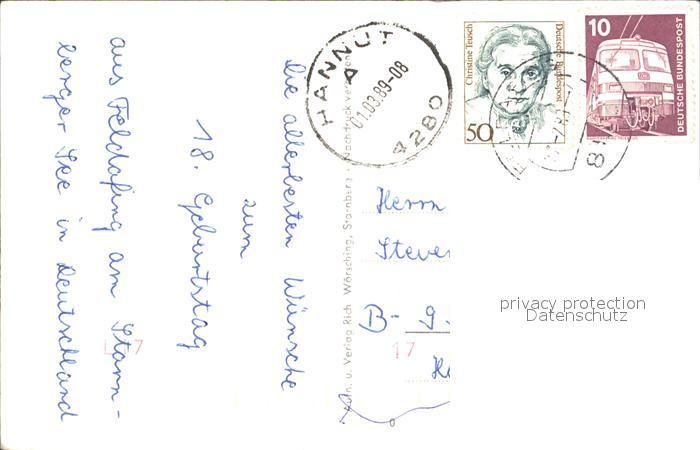 die allerbesten Wünsche
zum
18. Geburtstag
aus Feldafing am Starn-
berger See in Deutschland
HANNUT
A
01.03.89-08
4280
Christine Teusch
Deutsche Bundespost
50
10
DEUTSCHE BUNDESPOST
u. Verlag Rich. Wörsching, Starnberg
Herrn
B-
17
privacy protection
Datenschutz